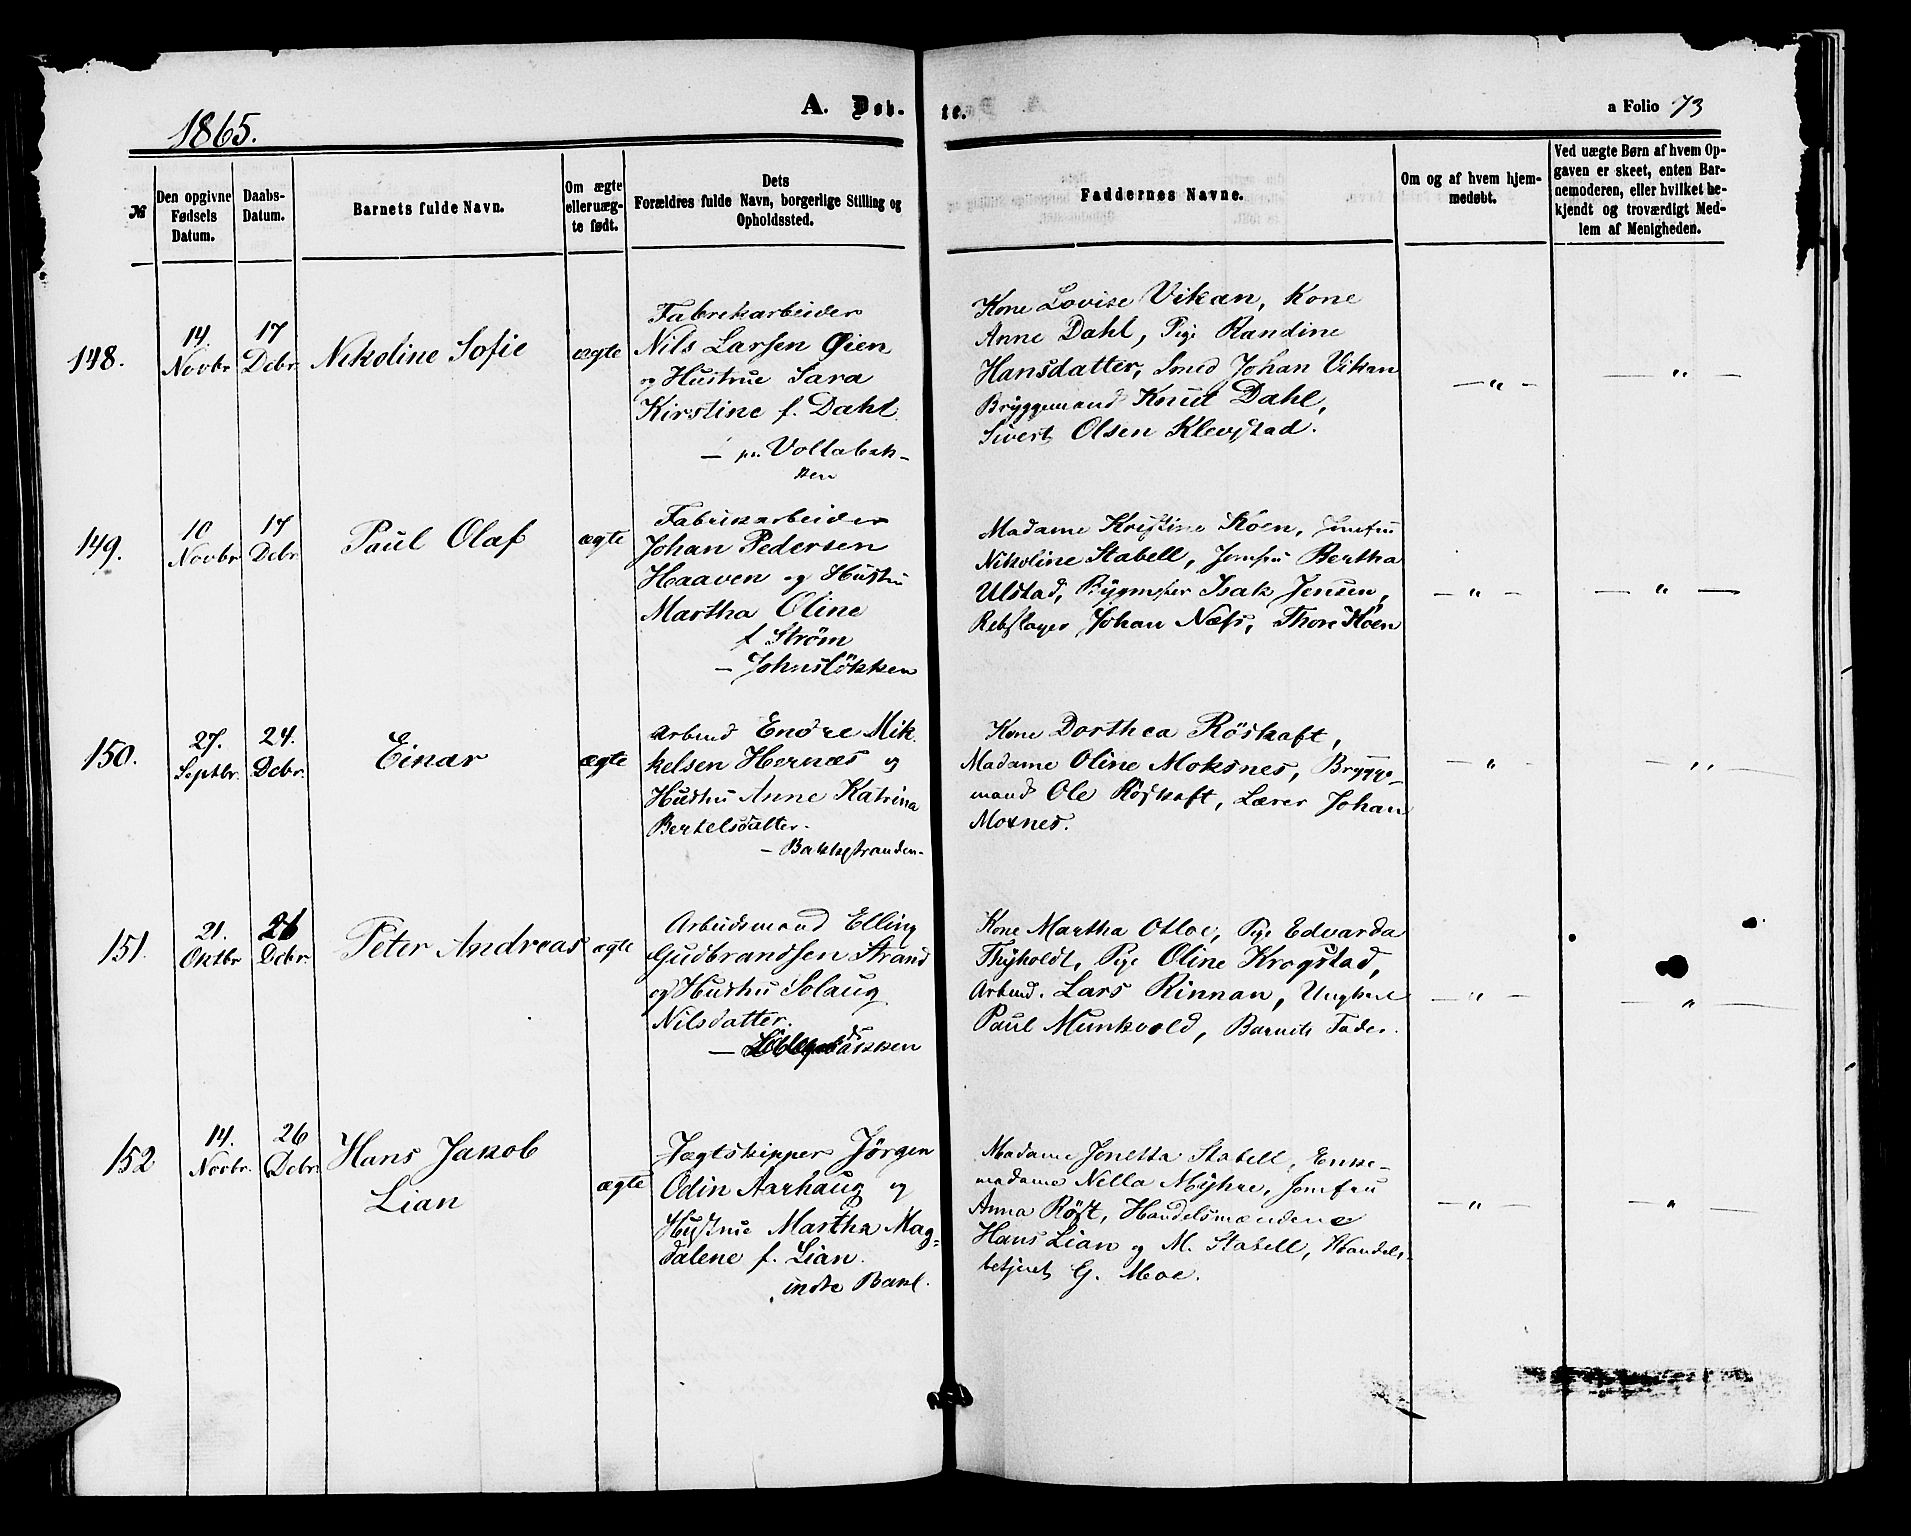 1865.
A. Døb-
te.
a Folio 73
№
Den opgivne Fødsels Datum.
Daabs-Datum.
Barnets fulde Navn.
Om ægte eller uæg-te født.
Dets Forældres fulde Navn, borgerlige Stilling og Opholdssted.
Faddernes Navne.
Om og af hvem hjem-medøbt.
Ved uægte Børn af hvem Op-gaven er skeet, enten Bar-nemoderen, eller hvilket be-kjendt og troværdigt Med-lem af Menigheden.
148.
14. Novbr
17 Debr.
Nikoline Sofie
ægte
Fabrikarbeider
Nils Larsen Øien
og Hustrue Sara
Kirstine f. Dahl
— pr. Vollabak-
ken
Kone Lovise Vikan, Kone
Anne Dahl, Pige Randine
Hansdatter, Smed Johan Vikan
Bryggemand Knut Dahl,
Sivert Olsen Klevstad.
— " —
— " —
149.
10 Novbr
17 Debr.
Paul Olaf
ægte
Fabrikarbeider
Johan Pedersen
Haaven og Hustru
Martha Oline
f Strøm
— Johnsløkken
Madame Kristine Koen, Jomfru
Nikoline Stabell, Jomfru Bertha
Ulstad, Bygmster Isak Jensen,
Rebslager Johan Næss, Thore Koen
— " —
— " —
150.
27. Septbr.
24. Debr.
Einar
ægte
Arbmd Endre Mik-
kelsen Hernæs og
Hustru Anne Katrina
Bertelsdatter.
— Bakkestranden-
Kone Dorthea Röskaft,
Madame Oline Moksnes, Brygge-
mand Ole Röskaft, Lærer Johan
Moxnes.
— " —
— " —
151.
21. Oktbr
26 Debr.
Peter Andreas
ægte
Arbeidsmand Elling
Gudbrandsen Strand
og Hustru Solaug
Nilsdatter.
Kone Martha Otloe, Pige Edvarda
Thyholdt, Pige Oline Krogstad,
Arbmd. Lars Rinnan, Ungkarl
Paul Munkvold, Barnets Fader.
— " —
— " —
152
14. Novbr.
26 Debr.
Hans Jakob
Lian
ægte
Jægtskipper Jørgen
Odin Aarhaug og
Hustrue Martha Mag=
dalene f. Lian.
indre Bakl.
Madame Jonetta Stabell, Enke-
madame Nella Myhre, Jomfru
Anna Røst, Handelsmændene
Hans Lian og M. Stabell, Handels-
betjent G. Moe.
— " —
— " —